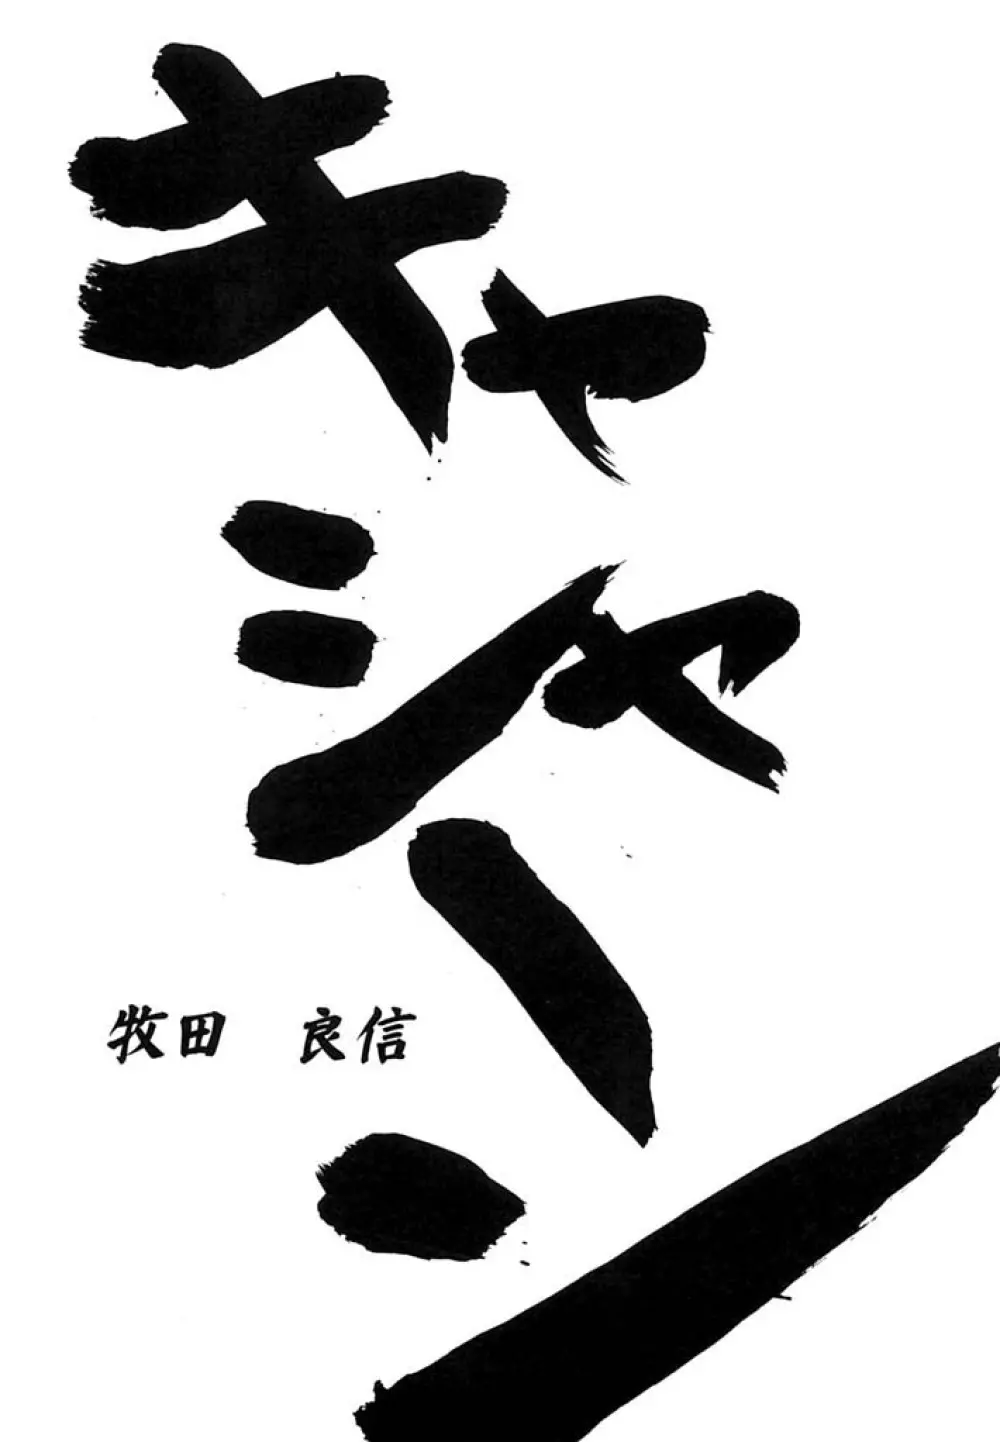 キャシャーン
牧田 良信